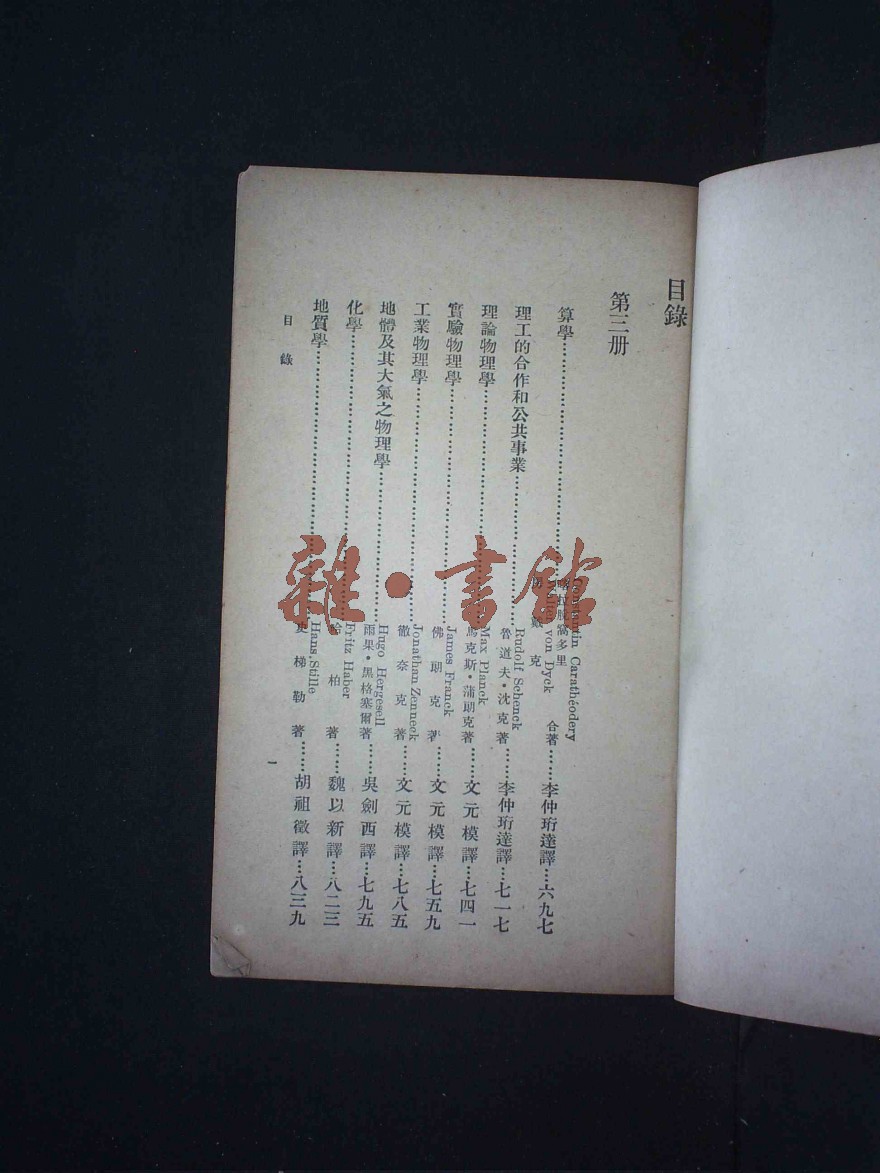 目錄
第三册
算學
Constantin Carathéodery
喀拉脫窩多里
von Dyck
克
合著
李仲珩達譯
六九七
理工的合作和公共事業
Rudolf Schenck
魯道夫·沈克著
李仲珩達譯
七一七
理論物理學
Max Planck
馬克斯·蒲朗克著
文元模譯
七四一
實驗物理學
James Franck
佛朗克著
文元模譯
七五九
工業物理學
Jonathan Zenneck
徹奈克著
文元模譯
七八五
地體及其大氣之物理學
Hugo Hergesell
雨果·黑格塞爾著
吳劍西譯
七九五
化學
Fritz Haber
哈柏著
魏以新譯
八二三
地質學
Hans Stille
史梯勒著
胡祖徵譯
八三九
目錄
一
雜·書館